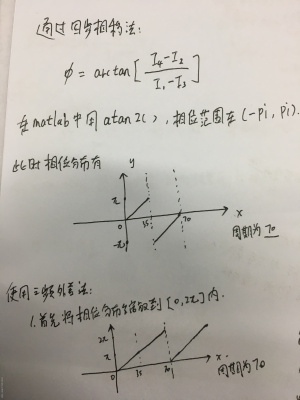 通过四步相移法:
φ = arctan[ (I₄-I₂) / (I₁-I₃) ]
在matlab中用atan2(),相位范围在(-pi, pi).
此时相位分布有
y
π
0 35 70 x
-π
周期为70
使用三频外差法:
1.首先将相位分布缩放到[0,2π]内.
2π
π
0 35 70 x
周期为70